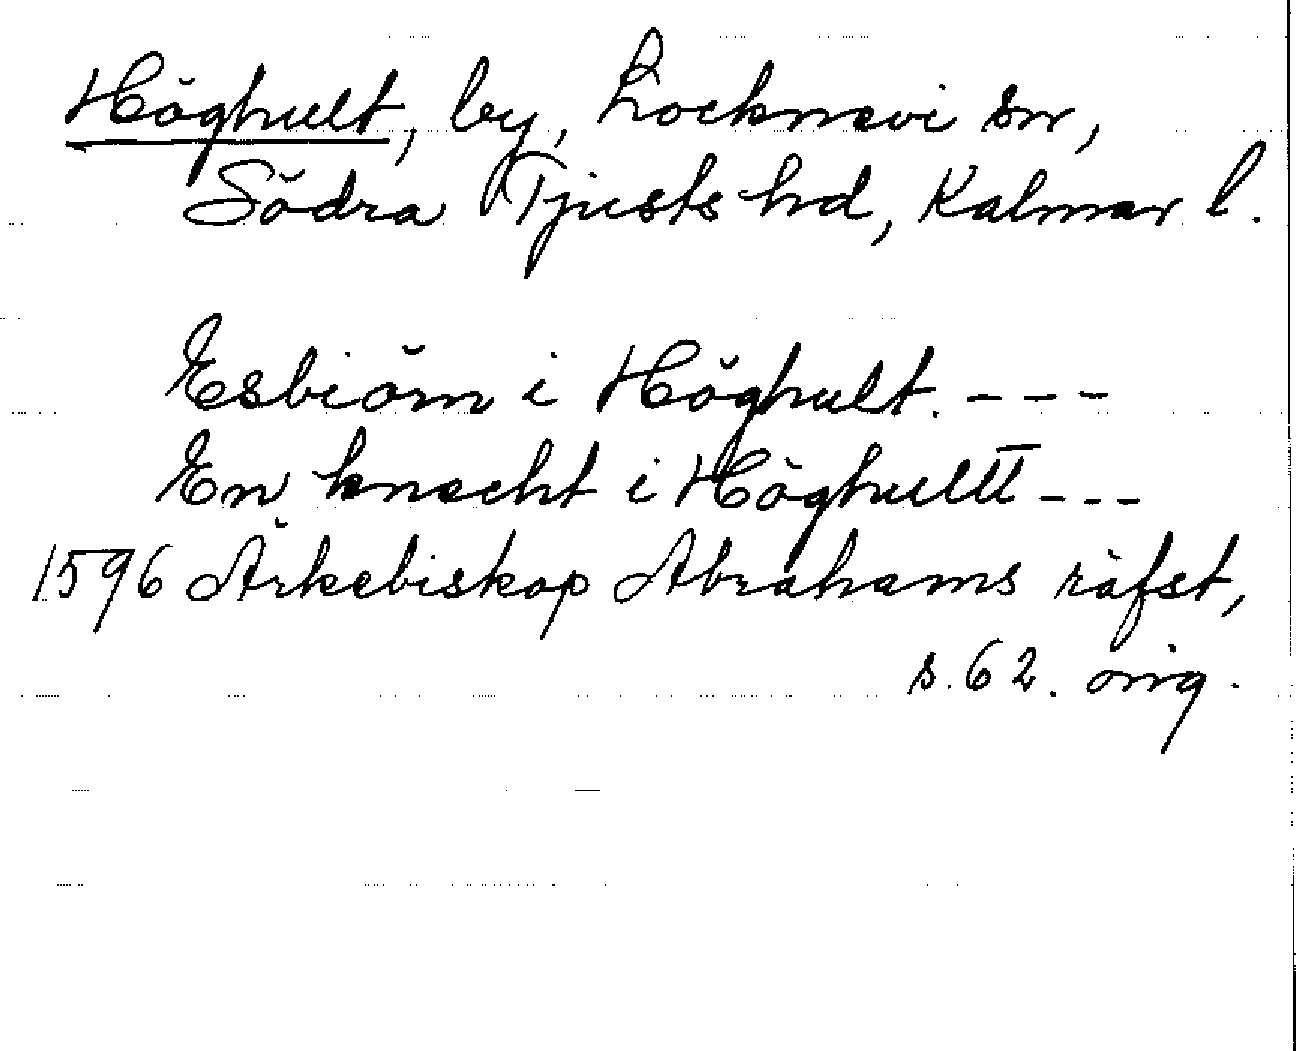 Höghult, by, Locknevi sn,
Södra Tjusts hd, Kalmar l.
Esbiörn i Höghult. - - -
En knecht i Höghultt - - -
1596 Ärkebiskop Abrahams räfst,
s. 62. orig.